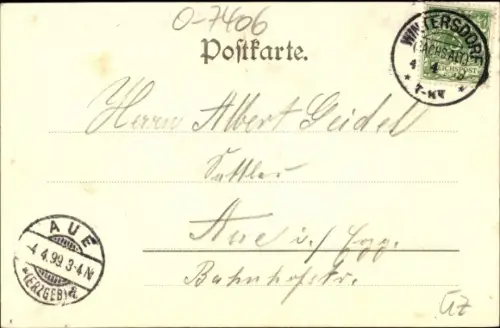 O-7406
Postkarte.
WINTERSDORF
(SACHS.ALT.)
4 4
* 7-8V. *
REICHSPOST
Herrn Albert Geidel
Sattler
Aue i./Erzg.
Bahnhofstr.
AUE
4.4.99.3-4.N
*(ERZGEB)a